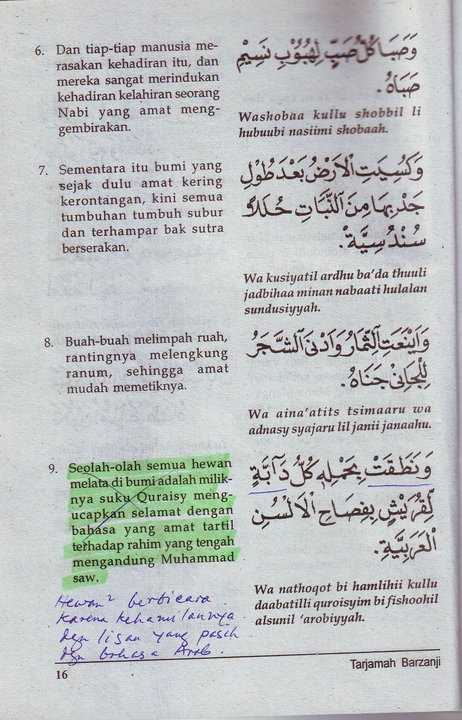 6. Dan tiap-tiap manusia me-
rasakan kehadiran itu, dan
mereka sangat merindukan
kehadiran kelahiran seorang
Nabi yang amat meng-
gembirakan.
وَصَبَا كُلُّ صَبٍّ لِهُبُوْبِ نَسِيْمِ
صَبَاهُ.
Washobaa kullu shobbil li
hubuubi nasiimi shobaah.
7. Sementara itu bumi yang
sejak dulu amat kering
kerontangan, kini semua
tumbuhan tumbuh subur
dan terhampar bak sutra
berserakan.
وَكُسِيَتِ الْاَرْضُ بَعْدَ طُوْلِ
جَدْبِهَا مِنَ النَّبَاتِ حُلَلًا
سُنْدُسِيَّةً.
Wa kusiyatil ardhu ba'da thuuli
jadbihaa minan nabaati hulalan
sundusiyyah.
8. Buah-buah melimpah ruah,
rantingnya melengkung
ranum, sehingga amat
mudah memetiknya.
وَاَيْنَعَتِ الثِّمَارُ وَاَدْنَى الشَّجَرُ
لِلْجَانِيْ جَنَاهُ.
Wa aina'atits tsimaaru wa
adnasy syajaru lil janii janaahu.
9. Seolah-olah semua hewan
melata di bumi adalah milik-
nya suku Quraisy meng-
ucapkan selamat dengan
bahasa yang amat tartil
terhadap rahim yang tengah
mengandung Muhammad
saw.
وَنَطَقَتْ بِحَمْلِهِ كُلُّ دَآبَّةٍ
لِقُرَيْشٍ بِفِصَاحِ الْاَلْسُنِ
الْعَرَبِيَّةِ.
Wa nathoqot bi hamlihii kullu
daabatilli quroisyim bi fishoohil
alsunil 'arobiyyah.
Hewan² berbicara
karena kehamilannya
dgn lisan yang pasih
dgn bahasa Arab.
Tarjamah Barzanji
16